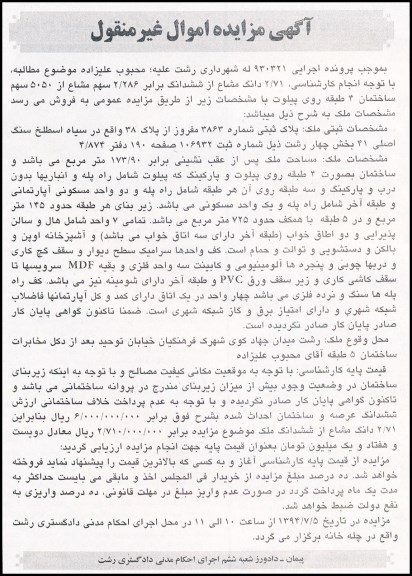 آگهی مزایده اموال غیرمنقول
بموجب پرونده اجرایی ۹۳۰۳۲۱ له شهرداری رشت علیه؛ محبوب علیزاده موضوع مطالبه،
با توجه انجام کارشناسی، ۲/۷۱ دانگ مشاع از ششدانگ برابر ۲/۲۸۶ سهم مشاع از ۵۰۵۰ سهم
ساختمان ۴ طبقه روی پیلوت با مشخصات زیر از طریق مزایده عمومی به فروش می رسد
مشخصات ملک به شرح ذیل میباشد:
مشخصات ثبتی ملک: پلاک ثبتی شماره ۳۸۶۳ مفروز از پلاک ۳۸ واقع در سیاه اسطلخ سنگ
اصلی ۳۱ بخش چهار رشت ذیل شماره ثبت ۱۰۶۹۳۲ صفحه ۱۹۰ دفتر ۴/۸۷۴
مشخصات ملک: مساحت ملک پس از عقب نشینی برابر ۱۷۳/۹۰ متر مربع می باشد و
ساختمان بصورت ۴ طبقه روی پیلوت و پارکینگ که پیلوت شامل راه پله و انباریها بدون
درب و پارکینگ و سه طبقه روی آن هر طبقه شامل راه پله و دو واحد مسکونی آپارتمانی
و طبقه آخر شامل راه پله و یک واحد مسکونی می باشد. زیر بنای هر طبقه حدود ۱۴۵ متر
مربع و در ۵ طبقه با همکف حدود ۷۲۵ متر مربع می باشد. تمامی ۷ واحد شامل هال و سالن
پذیرایی و دو اطاق خواب (طبقه آخر دارای سه اتاق خواب می باشد) و آشپزخانه اوپن و
بالکن و دستشویی و توالت و حمام است. کف واحدها سرامیک سطح دیوار و سقف گچ کاری
و دربها چوبی و پنجره ها آلومینیومی و کابینت سه واحد فلزی و بقیه MDF سرویسها تا
سقف کاشی کاری و زیر سقف ورق PVC و طبقه آخر دارای شومینه نیز می باشد. کف راه
پله ها سنگ و نرده فلزی می باشد چهار واحد در یک اتاق دارای کمد و کل آپارتمانها فاضلاب
شبکه شهری و دارای امتیاز برق و گاز شبکه شهری است. ضمنا تاکنون گواهی پایان کار
صادر پایان کار صادر نگردیده است.
محل وقوع ملک: رشت میدان جهاد کوی شهرک فرهنگیان خیابان توحید بعد از دکل مخابرات
ساختمان ۵ طبقه آقای محبوب علیزاده
قیمت پایه کارشناسی: با توجه به موقعیت مکانی کیفیت مصالح و با توجه به اینکه زیربنای
ساختمان در وضعیت وجود بیش از میزان زیربنای مندرج در پروانه ساختمانی می باشد و
تاکنون گواهی پایان کار صادر نگردیده و با توجه به عدم پرداخت خلاف ساختمانی ارزش
ششدانگ عرصه و ساختمان احداث شده بشرح فوق برابر ۶/۰۰۰/۰۰۰/۰۰۰ ریال بنابراین
۲/۷۱ دانگ مشاع از ششدانگ ملک موضوع مزایده برابر ۲/۷۱۰/۰۰۰/۰۰۰ ریال معادل دویست
و هفتاد و یک میلیون تومان بعنوان قیمت پایه جهت انجام مزایده ارزیابی گردید:
مزایده از قیمت پایه کارشناسی آغاز و به کسی که بالاترین قیمت را پیشنهاد نماید فروخته
خواهد شد. ده درصد مبلغ مزایده از خریدار فی المجلس اخذ و مابقی می بایست حداکثر به
مدت یک ماه پرداخت گردد در صورت عدم واریز مبلغ در مهلت قانونی، ده درصد واریزی به
نفع دولت ضبط خواهد شد.
مزایده در تاریخ ۱۳۹۳/۷/۵ از ساعت ۱۰ الی ۱۱ در محل اجرای احکام مدنی دادگستری رشت
واقع در چله خانه برگزار می گردد.
پیمان ـ دادورز شعبه ششم اجرای احکام مدنی دادگستری رشت